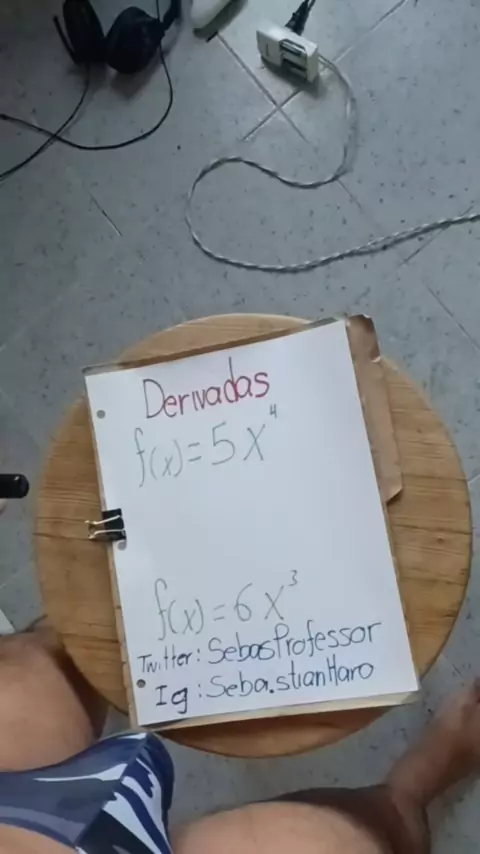 Derivadas
f(x)=5x⁴
f(x)=6x³
Twitter: SebasProfessor
Ig: Seba.stianHaro